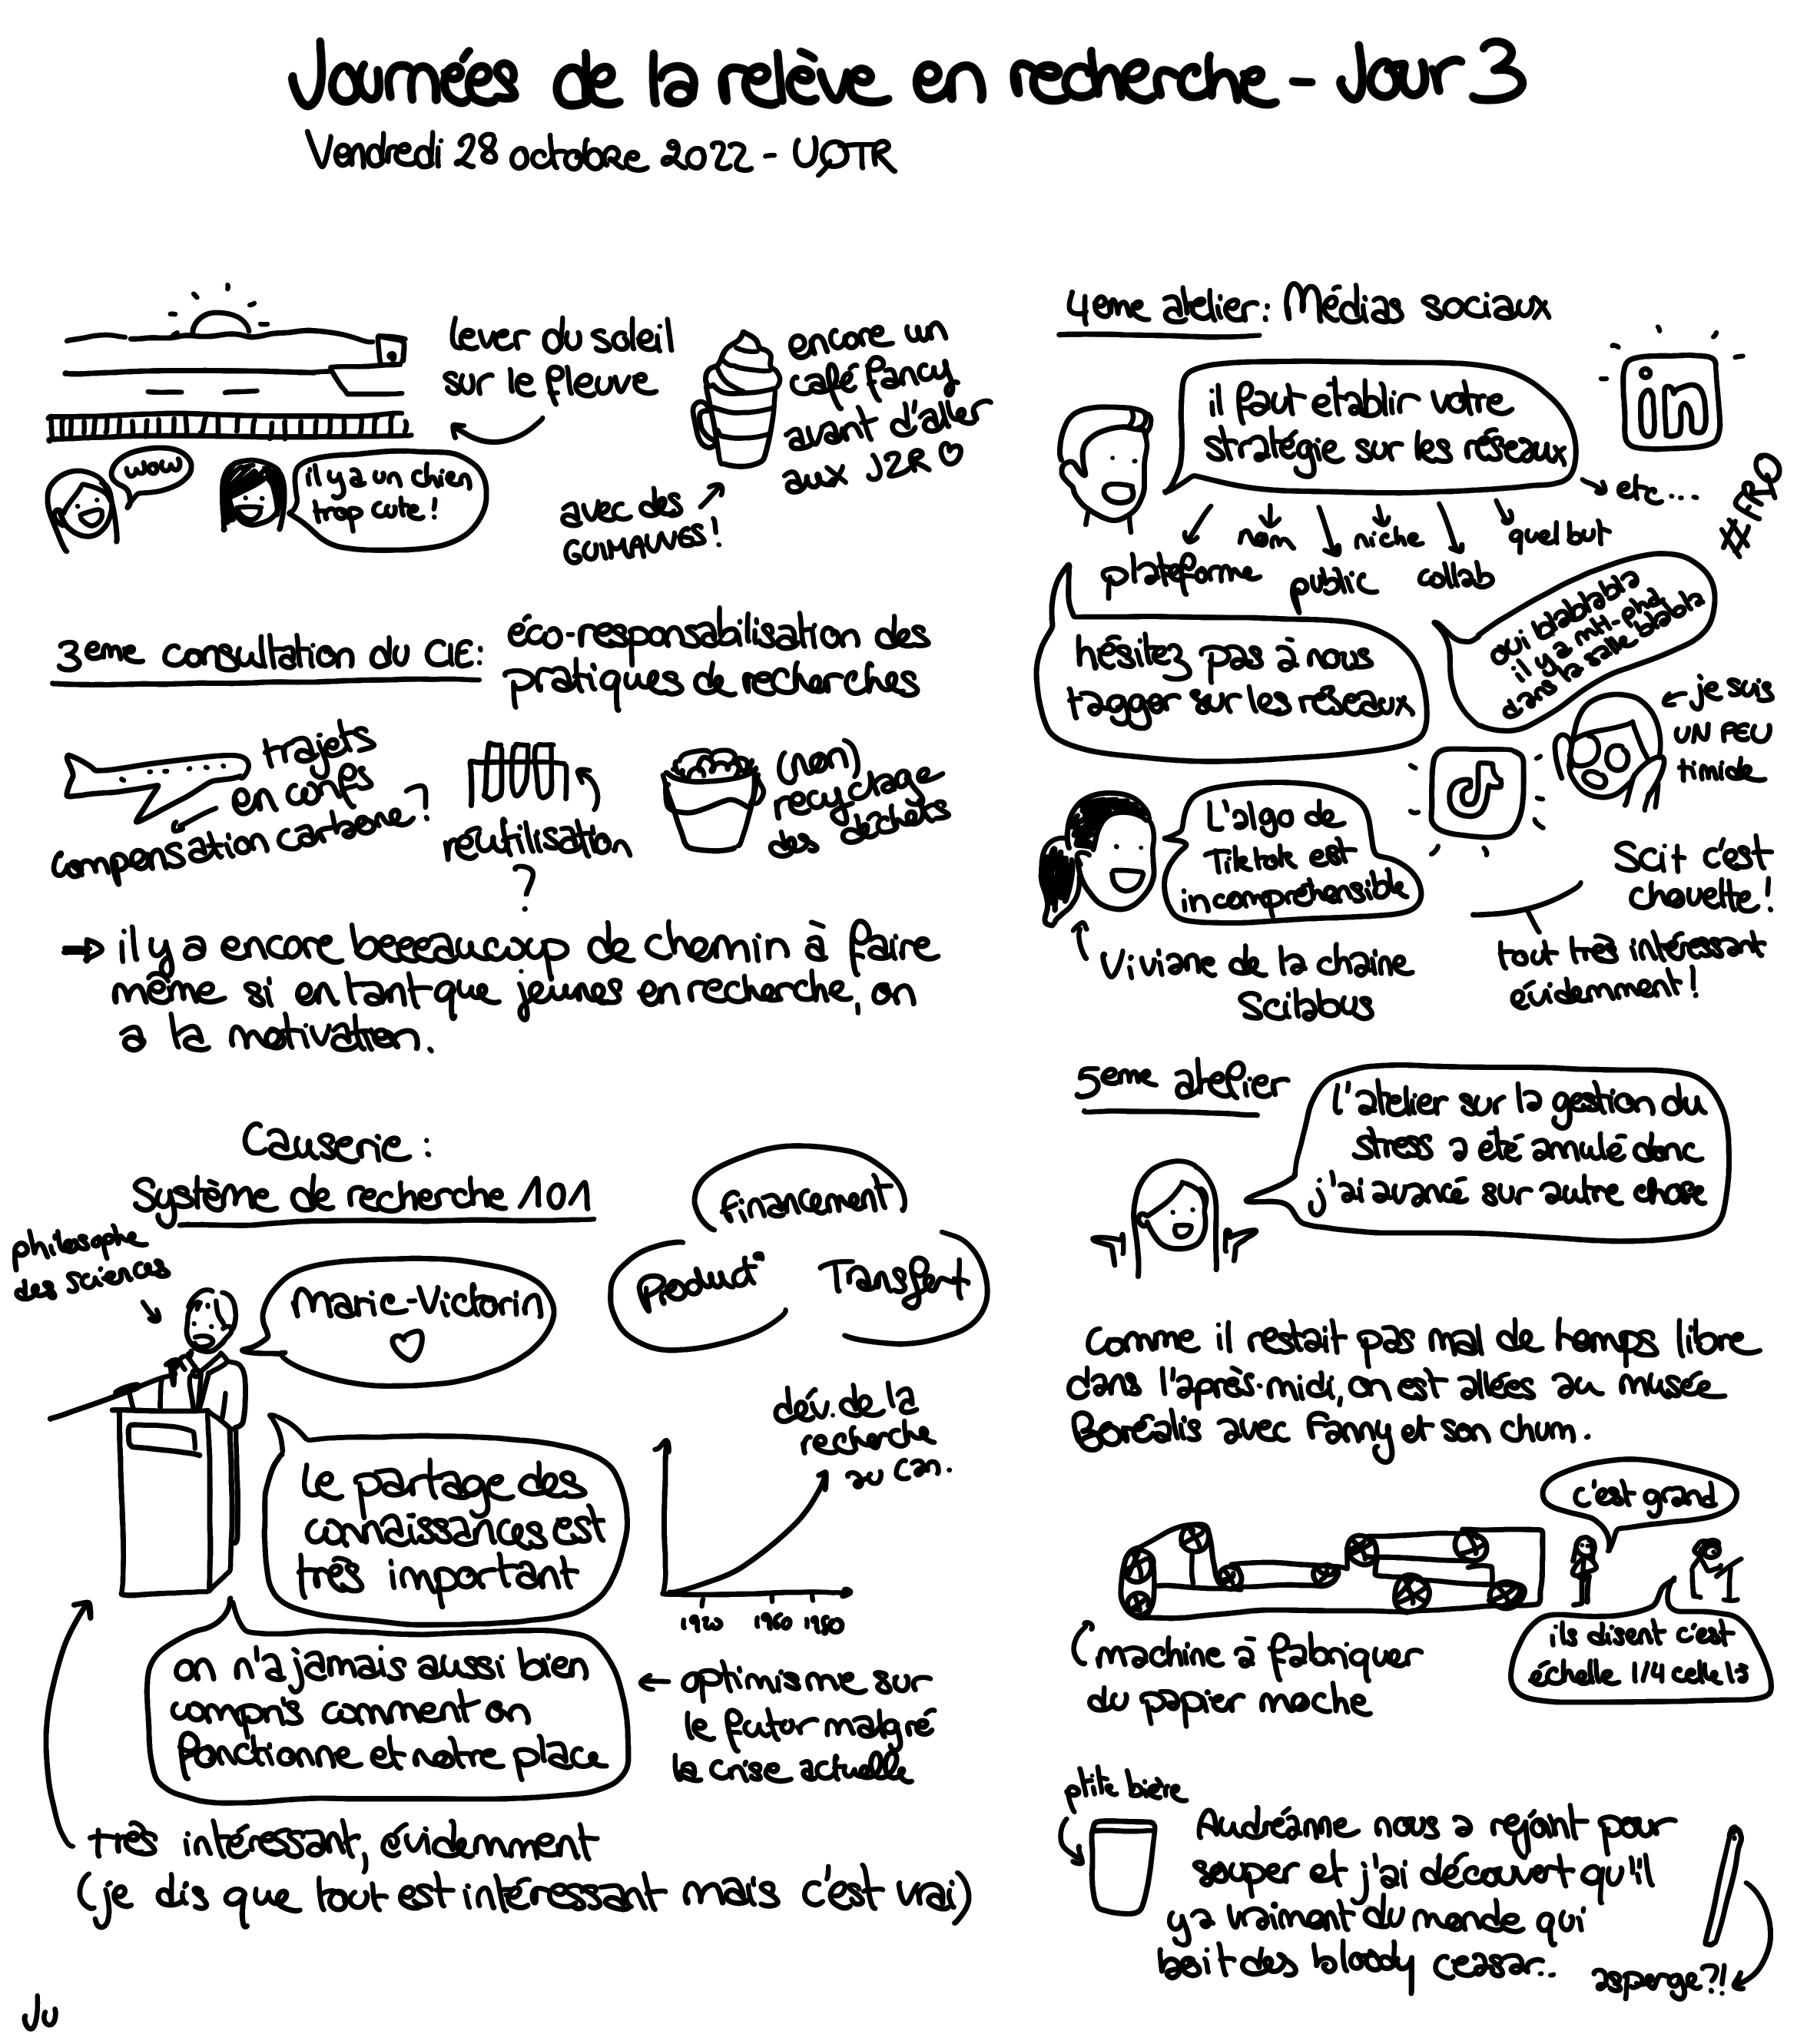 Journées de la relève en recherche - Jour 3
Vendredi 28 octobre 2022 - UQTR
lever du soleil
sur le fleuve
wow
il y a un chien
trop cute !
encore un
café fancy
avant d'aller
aux J2R
avec des
GUIMAUVES !
3eme consultation du CIE: éco-responsabilisation des
pratiques de recherches
trajets
en confs
compensation carbone ?
réutilisation
?
(non)
recyclage
des déchets
il y a encore beeeaucoup de chemin à faire
même si en tant que jeunes en recherche, on
a la motivation.
Causerie :
Système de recherche 101
philosophe
des sciences
Marie-Victorin
Financement
Product°
Transfert
le partage des
connaissances est
très important
dév. de la
recherche
au can.
1920 1960 1980
on n'a jamais aussi bien
compris comment on
fonctionne et notre place
optimisme sur
le futur malgré
la crise actuelle
très intéressant, évidemment
(je dis que tout est intéressant mais c'est vrai)
Ju
4eme atelier : Médias sociaux
il faut etablir votre
stratégie sur les réseaux
in
etc...
#FRQ
plateforme
nom
public
niche
collab
quel but
hésitez pas à nous
tagger sur les réseaux
oui blablabla
il y a mtl-phd
dans la salle blabla
je suis
UN PEU
timide
L'algo de
Tiktok est
incompréhensible
Viviane de la chaine
Scilabus
Scit c'est
chouette !
tout très intéressant
évidemment !
5eme atelier
l'atelier sur la gestion du
stress a été annulé donc
j'ai avancé sur autre chose
Comme il restait pas mal de temps libre
dans l'après-midi, on est allées au musée
Boréalis avec Fanny et son chum.
c'est grand
ils disent c'est
échelle 1/4 celle là
machine à fabriquer
du papier mache
ptite bière
Audréanne nous a rejoint pour
souper et j'ai découvert qu'il
y a vraiment du monde qui
boit des bloody ceasar..
asperge ?!